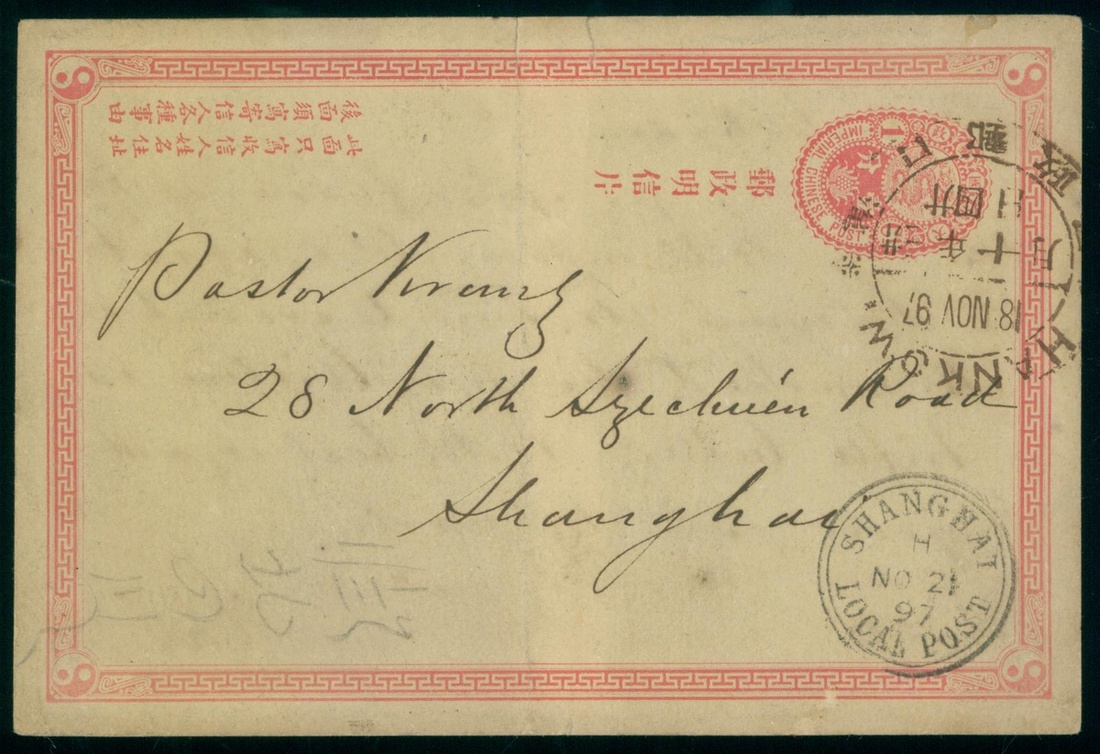 後面須寫寄信人各種事由
此面只寫收信人姓名住址
郵政明信片
1
IMPERIAL CHINESE POST
廿四日
年十月
18 NOV 97
HANKOW
Pastor Kranz
28 North Szechuen Road
Shanghai
SHANGHAI
H
NO 21
97
LOCAL POST